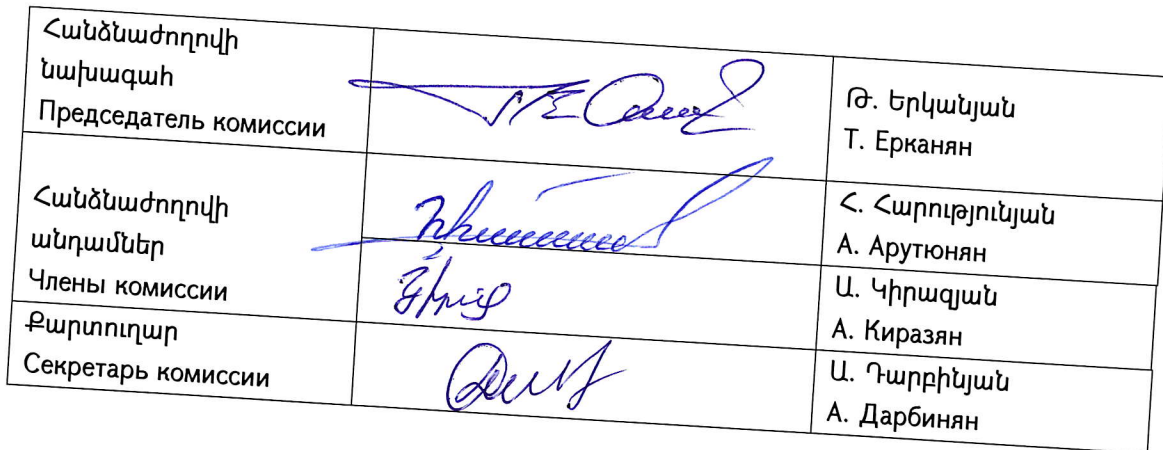 Հանձնաժողովի
նախագահ
Председатель комиссии
Թ. Երկանյան
Т. Ерканян
Հանձնաժողովի
անդամներ
Члены комиссии
Հ. Հարությունյան
А. Арутюнян
Ա. Կիրազյան
А. Киразян
Քարտուղար
Секретарь комиссии
Ա. Դարբինյան
А. Дарбинян